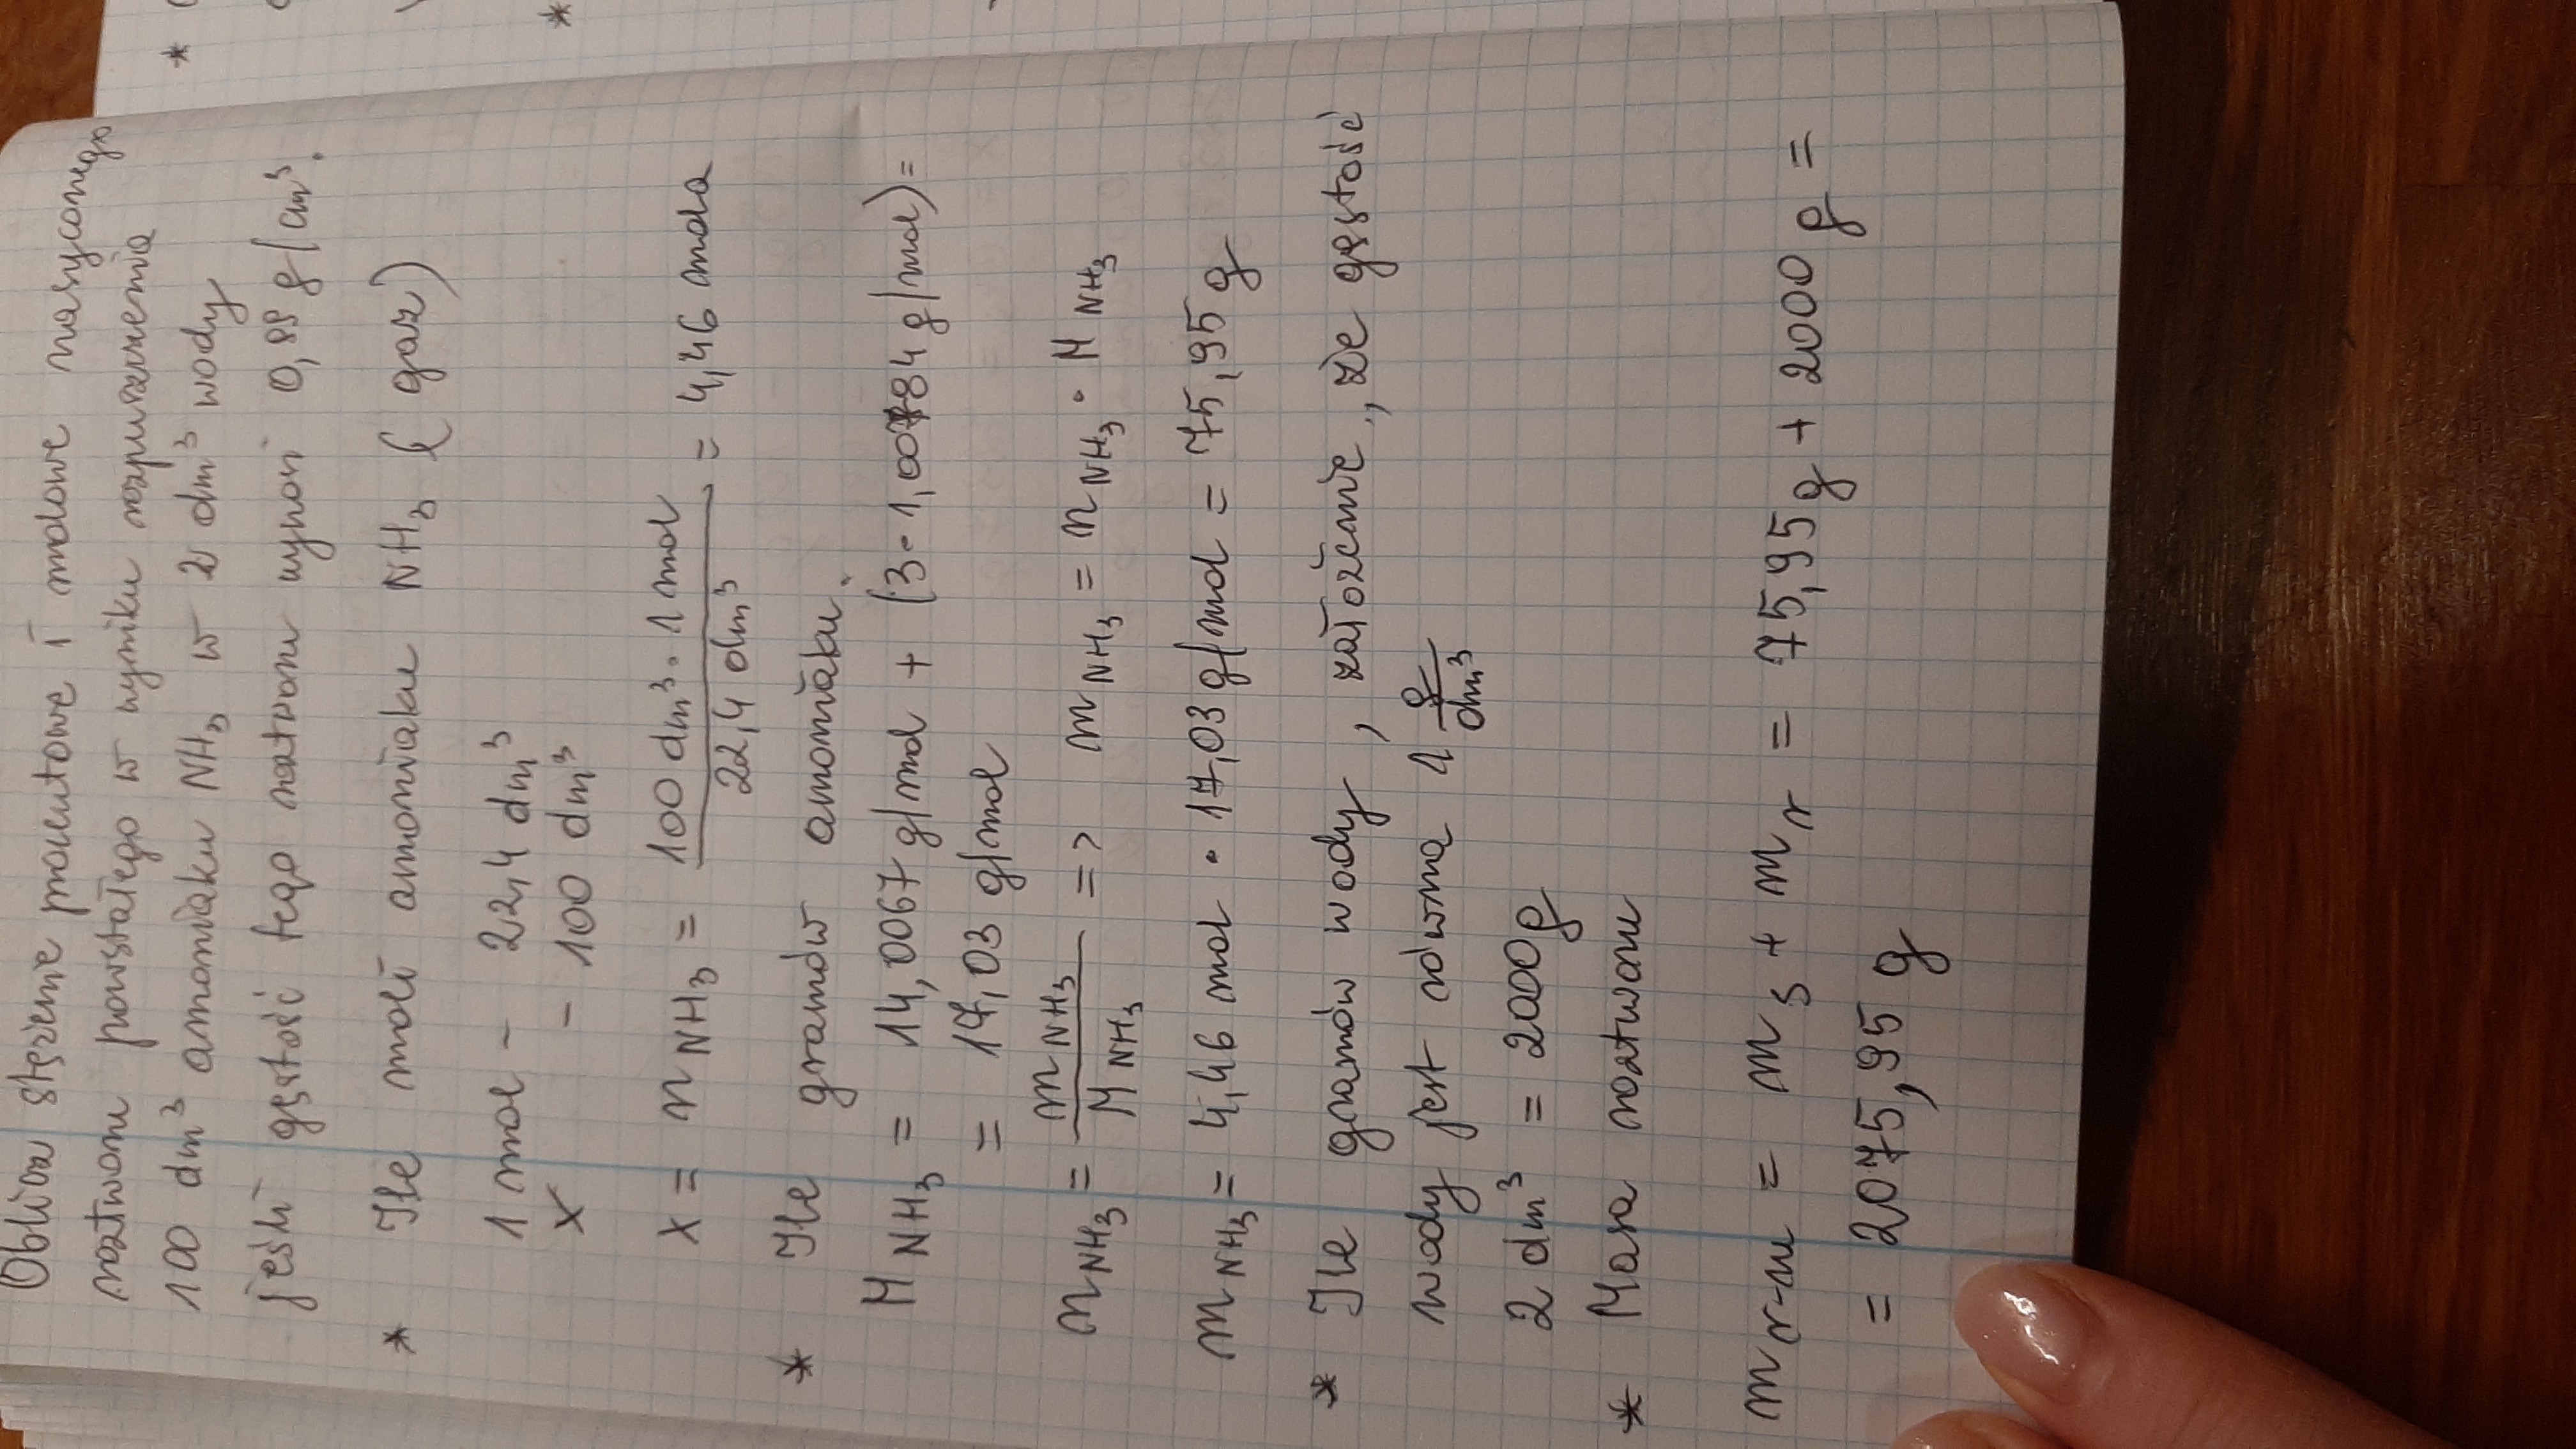 Oblicz stężenie procentowe i molowe nasyconego
roztworu powstałego w wyniku rozpuszczenia
100 dm³ amoniaku NH₃ w 2 dm³ wody
jeśli gęstość tego roztworu wynosi 0,89 g/cm³.
* Ile moli amoniaku NH₃ (gaz)
1 mol - 22,4 dm³
x - 100 dm³
x = n NH₃ = 100 dm³ · 1 mol / 22,4 dm³ = 4,46 mola
* Ile gramów amoniaku.
M NH₃ = 14,0067 g/mol + (3 · 1,00784 g/mol) =
= 17,03 g/mol
n NH₃ = m NH₃ / M NH₃ => m NH₃ = n NH₃ · M NH₃
m NH₃ = 4,46 mol · 17,03 g/mol = 75,95 g
* Ile gramów wody, założenie,, że gęstość
wody jest równa 1 g/dm³
2 dm³ = 2000 g
* Masa roztworu
m r-ru = m s + m r = 75,95 g + 2000 g =
= 2075,95 g